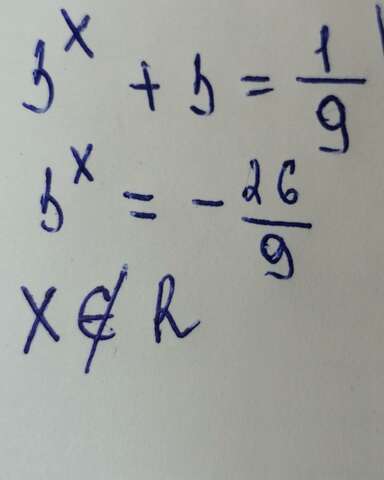 3^x + 3 = 1/9
3^x = -26/9
x ∉ R